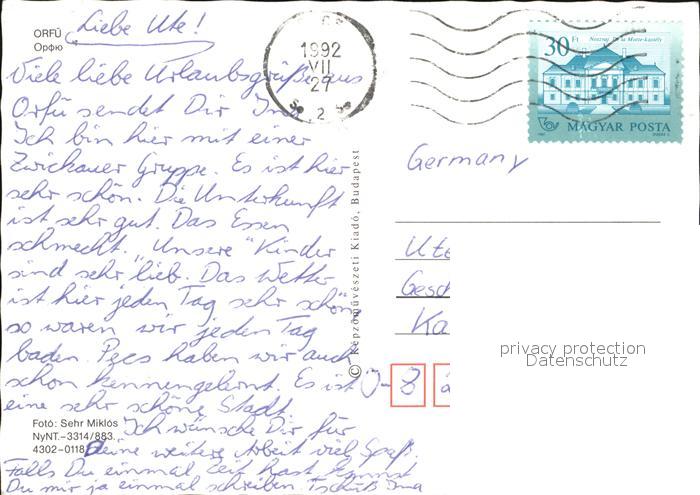 ORFŰ
Орфю
Liebe Ute!
Viele liebe Urlaubsgrüße aus
Orfü sendet Dir Ina.
Ich bin hier mit einer
Zwickauer Gruppe. Es ist hier
sehr schön. Die Unterkunft
ist sehr gut. Das Essen
schmeckt. „Unsere" Kinder
sind sehr lieb. Das Wetter
ist hier jeden Tag sehr schön,
so waren wir jeden Tag
baden. Pecs haben wir auch
schon kennengelernt. Es ist
eine sehr schöne Stadt.
Ich wünsche Dir für
Deine weitere Arbeit viel Spaß.
Falls Du einmal Zeit hast kannst
Du mir ja einmal schreiben. Tschüß Ina
Fotó: Sehr Miklós
NyNT.–3314/883.
4302-0118
© Képzőművészeti Kiadó, Budapest
1992
VII
27
2
30 Ft
MAGYAR POSTA
Germany
Ute
Gesc
Ka
privacy protection
Datenschutz